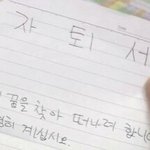 자 퇴 서
꿈을 찾아 떠나려 합니
계십시오.